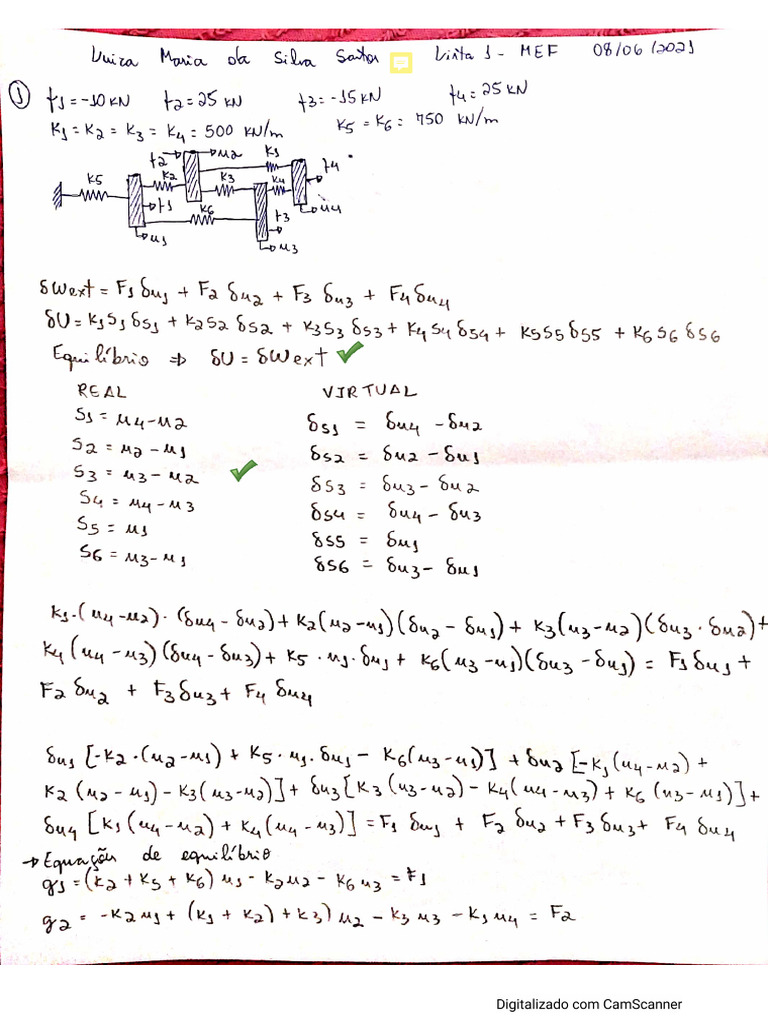 Luiza Maria da Silva Santos Lista 1 - MEF 08/06/2021
① f1 = -10 KN f2 = 25 KN f3 = -15 KN f4 = 25 KN
K1 = K2 = K3 = K4 = 500 KN/m K5 = K6 = 750 KN/m
f2 u2 K1 f4
K5 K2 K3 K4
f1 K6 f3 u4
u1 u3
δWext = F1 δu1 + F2 δu2 + F3 δu3 + F4 δu4
δU = K1S1δS1 + K2S2δS2 + K3S3δS3 + K4S4δS4 + K5S5δS5 + K6S6δS6
Equilíbrio ⇒ δU = δWext ✓
REAL VIRTUAL
S1 = u4 - u2 δS1 = δu4 - δu2
S2 = u2 - u1 δS2 = δu2 - δu1
S3 = u3 - u2 ✓ δS3 = δu3 - δu2
S4 = u4 - u3 δS4 = δu4 - δu3
S5 = u1 δS5 = δu1
S6 = u3 - u1 δS6 = δu3 - δu1
K1·(u4-u2)·(δu4 - δu2) + K2(u2-u1)(δu2 - δu1) + K3(u3-u2)(δu3 · δu2) +
K4(u4-u3)(δu4-δu3) + K5·u1·δu1 + K6(u3-u1)(δu3 - δu1) = F1δu1 +
F2 δu2 + F3 δu3 + F4 δu4
δu1 [-K2·(u2-u1) + K5·u1·δu1 - K6(u3-u1)] + δu2 [-K1(u4-u2) +
K2(u2-u1) - K3(u3-u2)] + δu3 [K3(u3-u2) - K4(u4-u3) + K6(u3-u1)] +
δu4 [K1(u4-u2) + K4(u4-u3)] = F1 δu1 + F2 δu2 + F3 δu3 + F4 δu4
→ Equações de equilíbrio
g1 = (K2 + K5 + K6) u1 - K2u2 - K6u3 = F1
g2 = -K2u1 + (K1 + K2) + K3) u2 - K3u3 - K1u4 = F2
Digitalizado com CamScanner